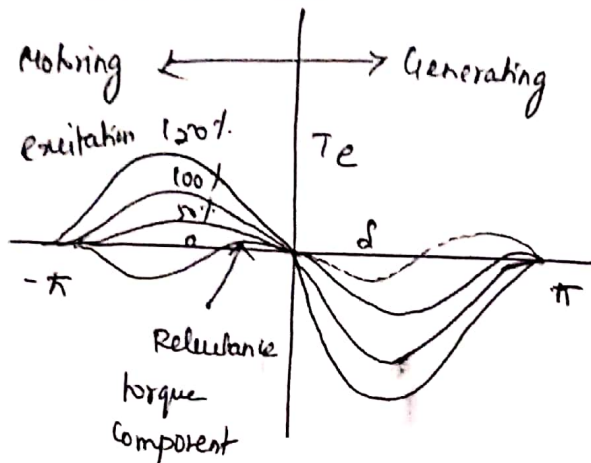 Motoring
Generating
excitation 120%
Te
100%
50%
0
δ
-π
π
Reluctance
torque
component